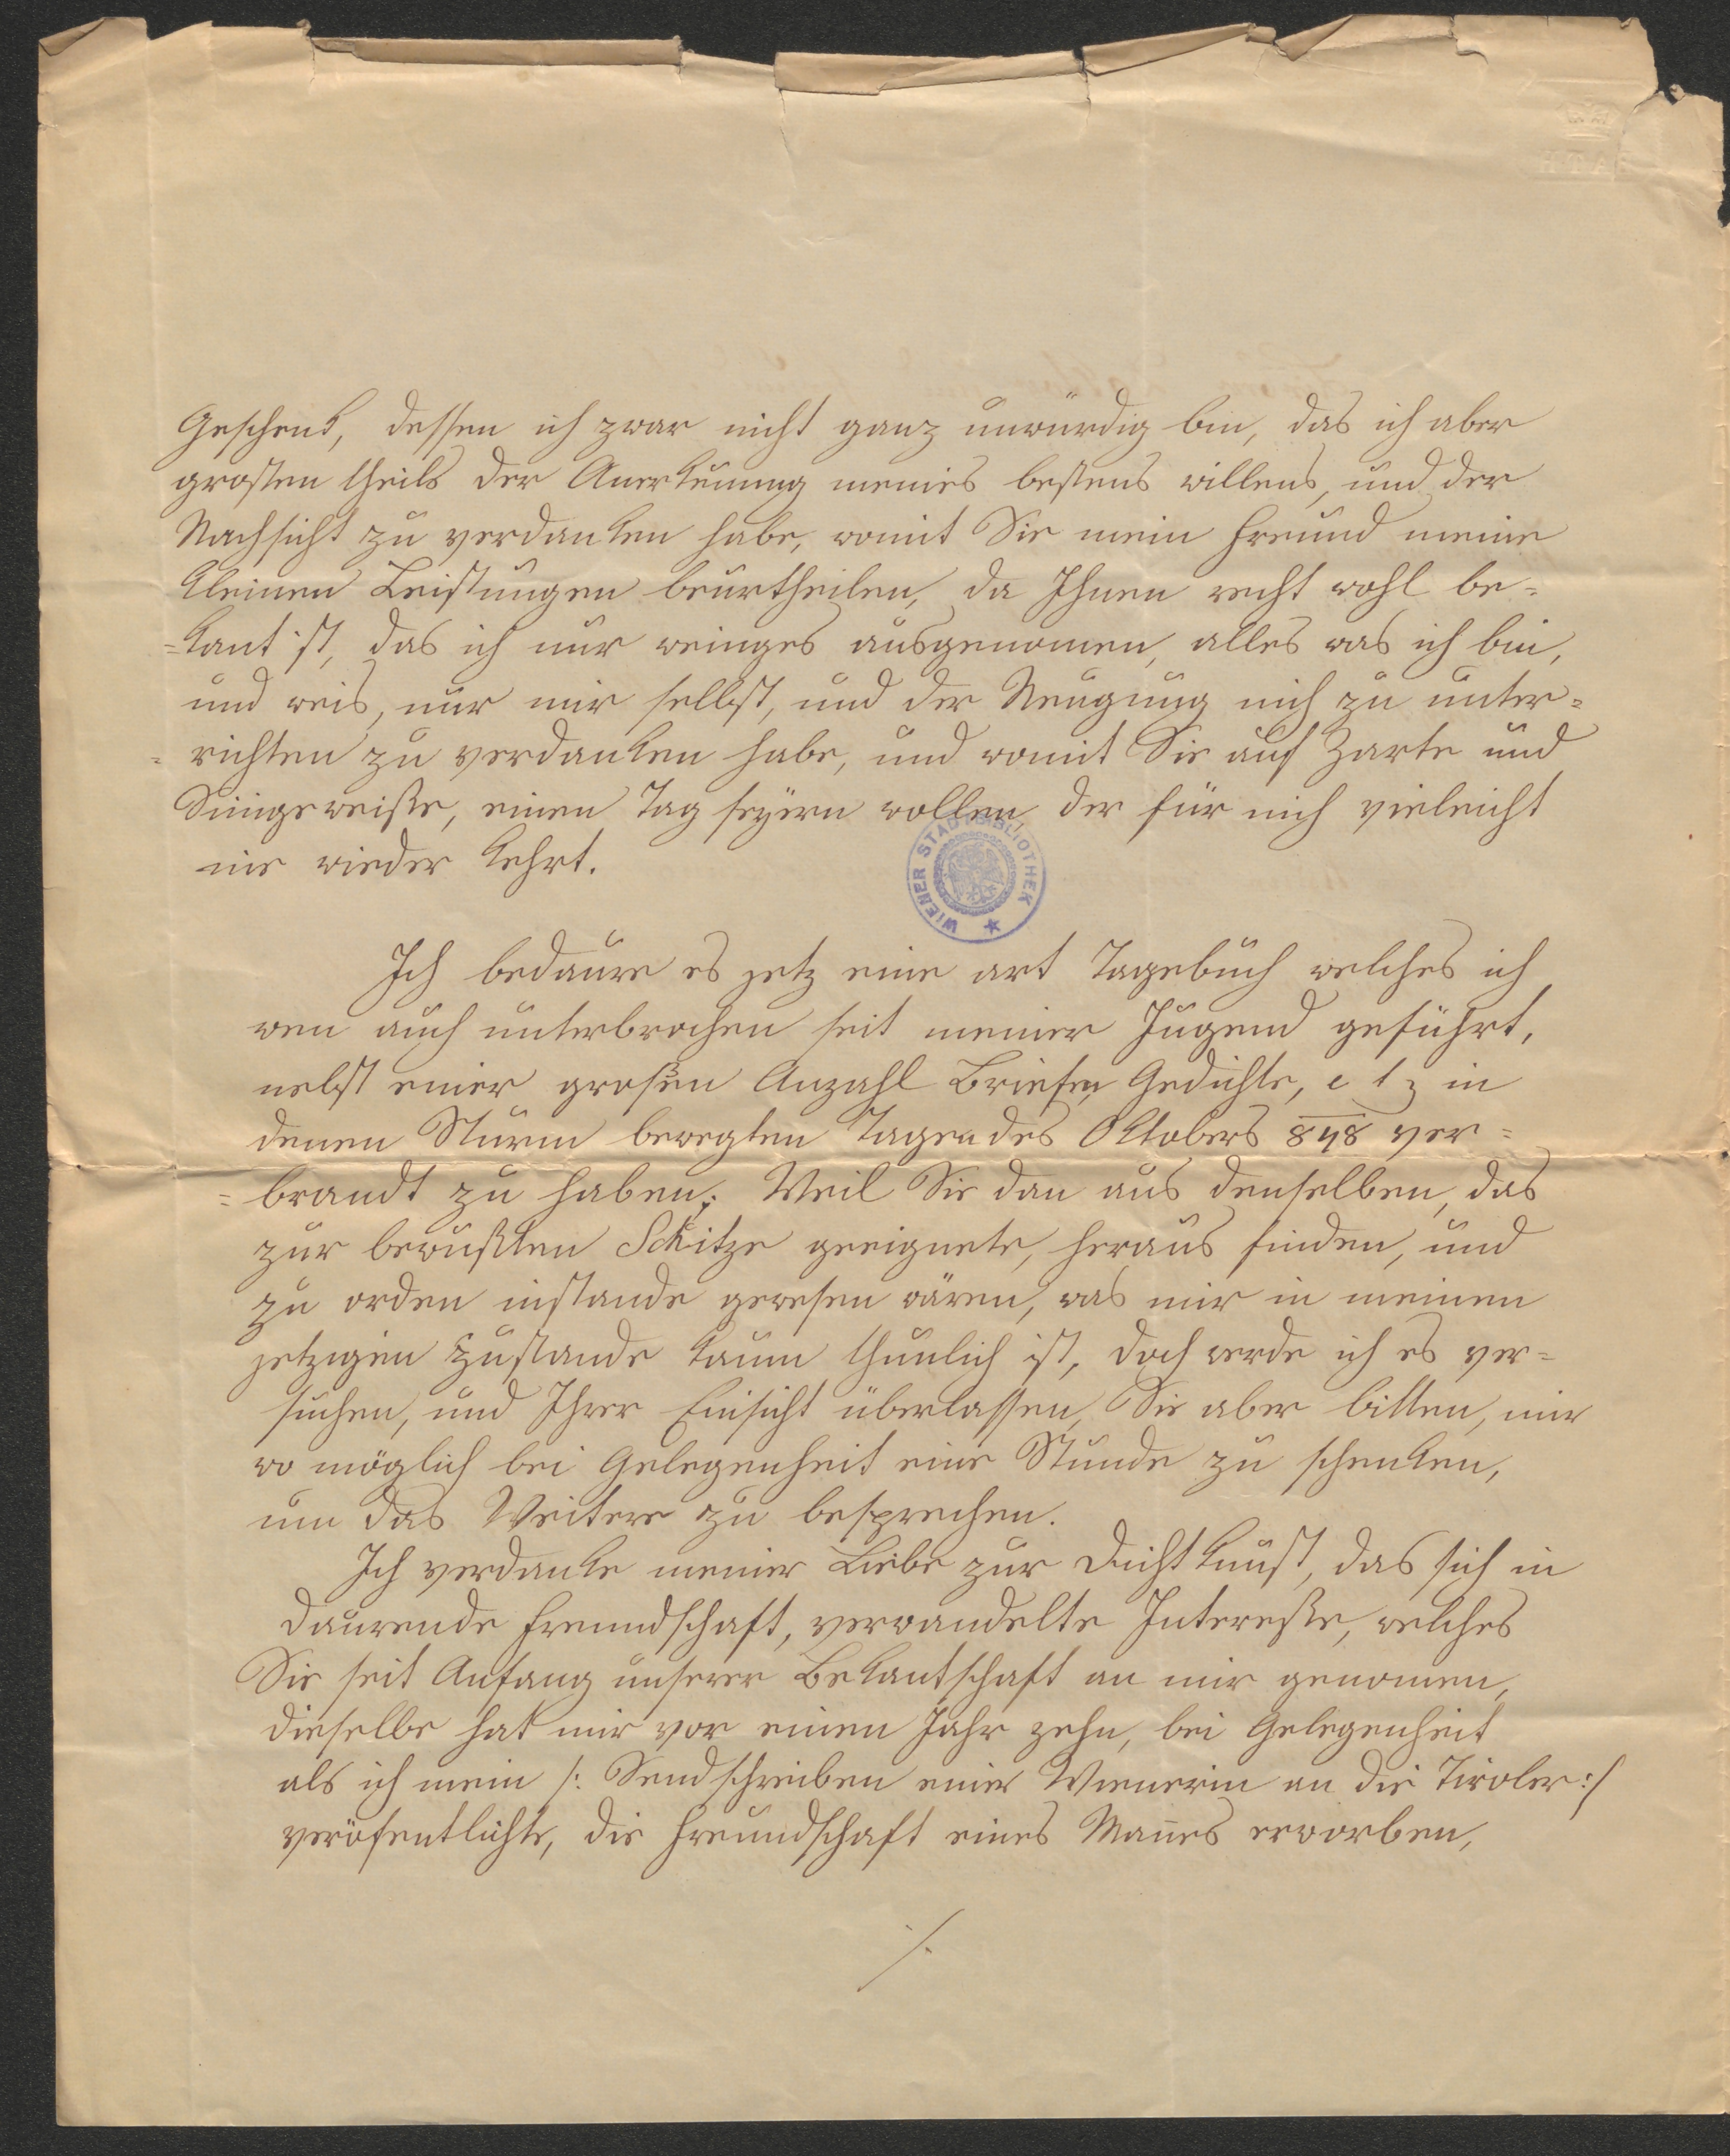 Geschenk, dessen ich zwar nicht ganz unwürdig bin, das ich aber
grosten theils der Anerkenung meines bestens willens, und der
Nachsicht zu verdanken habe, womit Sie mein Freund meine
kleinen Leistungen beurtheilen, da Ihnen recht wohl be=
=kant ist, das ich nur weinges ausgenomen, alles was ich bin,
und weis, nur mir selbst, und der Neugung mich zu unter=
=richten zu verdanken habe, und womit Sie auf Zarte und
Sinige weiße, einen Tag feyern wollen der für mich vieleicht
nie wieder kehrt.
WIENER STADTBIBLIOTHEK
Ich bedaure es jetz eine art Tagebuch welches ich
wen auch unterbrochen seit meiner Jugend geführt,
nebst einer großen Anzahl Briefen Gedichte, e t z in
denen Sturm bewegten Tagen des Oktobers 848 ver=
=brandt zu haben; Weil Sie dan aus denselben, das
zur bewußten Skitze geeignete, heraus finden, und
zu orden instande gewesen wären, was mir in meinen
jetzigen Zustande kaum thunlich ist, doch werde ich es ver=
suchen, und Ihrer Einsicht überlassen, Sie aber bitten, mir
wo möglich bei Gelegenheit eine Stunde zu schenken,
um das Weitere zu besprechen.
Ich verdanke meiner Liebe zur Dichtkunst, das sich in
daurende Freundschaft, verwandelte Intereße, welches
Sie seit Anfang unserer Bekantschaft an mir genomen,
dieselbe hat mir vor einen Jahr zehn, bei Gelegenheit
als ich mein /: Sendschreiben einer Wienerin an die Tiroler :/
veröfentlichte, die Freundschaft eines Manes erworben,
./.